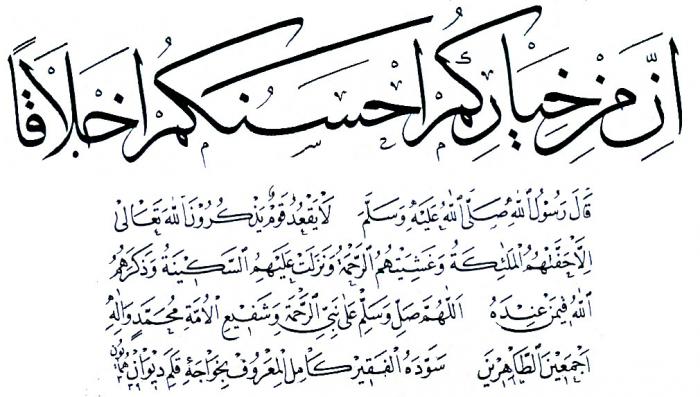 اِنَّ مِنْ خِيَارِكُمْ اَحْسَنُكُمْ اَخْلَاقًا
قَالَ رَسُولُ اللّٰهِ صَلَّى اللّٰهُ عَلَيْهِ وَسَلَّمَ لَا يَقْعُدُ قَوْمٌ يَذْكُرُونَ اللّٰهَ تَعَالٰى
اِلَّا حَفَّتْهُمُ الْمَلٰئِكَةُ وَغَشِيَتْهُمُ الرَّحْمَةُ وَنَزَلَتْ عَلَيْهِمُ السَّكِينَةُ وَذَكَرَهُمُ
اللّٰهُ فِيمَنْ عِنْدَهُ اَللّٰهُمَّ صَلِّ وَسَلِّمْ عَلٰى نَبِيِّ الرَّحْمَةِ وَشَفِيعِ الْاُمَّةِ مُحَمَّدٍ وَاٰلِهِ
اَجْمَعِينَ الطَّاهِرِينَ سَوَّدَهُ الْفَقِيرُ كَامِلُ الْمَعْرُوفُ بِخَواجَهِٔ قَلَمِ دِيوَانِ